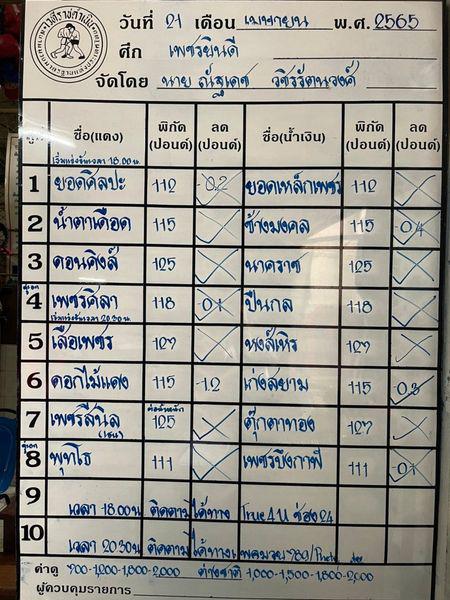 วันที่ 21 เดือน เมษายน พ.ศ. 2565
ศึก เพชรยินดี
จัดโดย นาย ณัฐเดช วชิรรัตนวงศ์
คู่ ชื่อ(แดง) พิกัด (ปอนด์) ลด (ปอนด์) ชื่อ(น้ำเงิน) พิกัด (ปอนด์) ลด (ปอนด์)
เริ่มแข่งขันเวลา 18.00 น.
1 ยอดศิลปะ 112 -0.2 ยอดเหล็กเพชร 112
2 น้ำตาเดือด 115 ช้างมงคล 115 -0.4
3 ดอนคิงส์ 125 นาคราช 125
คู่เอก
4 เพชรศิลา 118 -0.1 ปืนกล 118
เริ่มแข่งเวลา 20.30 น.
5 เสือเพชร 127 หงส์เหิร 127
6 ดอกไม้แดง 115 -1.2 เก่งสยาม 115 -0.3
ต่อน้ำหนัก
7 เพชรสีนิล 125 ตุ๊กตาทอง 127
คู่เอก
8 พุทโธ 111 เพชรบึงกาฬ 111 -0.1
9 เวลา 18.00น ติดตามได้ทาง True4U ช่อง 24
10 เวลา 20.30น ติดตามได้ทาง
ค่าดู 900-1,200-1,800-2,000 ต่างชาติ 1,000-1,500-1,800-2,000
ผู้ควบคุมรายการ